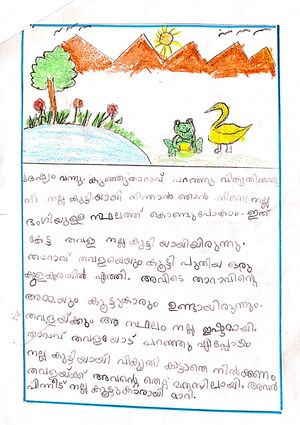 ദേഷ്യം വന്നു. കുഞ്ഞുതാറാവ് പറഞ്ഞു വികൃതി
നീ നല്ല കുട്ടിയായി നിന്നാൽ ഞാൻ നിന്നെ നല്ല
ഭംഗിയുള്ള സ്ഥലത്ത് കൊണ്ടുപോകാം. ഇത്
കേട്ട തവള നല്ല കുട്ടി യായിരുന്നു.
താറാവ് തവളയെയും കൂട്ടി പുതിയ ഒരു
കുളക്കരയിൽ എത്തി. അവിടെ താറാവിന്റെ
അമ്മയും കൂട്ടുകാരും ഉണ്ടായിരുന്നു.
തവളയ്ക്കും ആ സ്ഥലം നല്ല ഇഷ്ടമായി.
താറാവ് തവളയോട് പറഞ്ഞു എപ്പോഴും
നല്ല കുട്ടിയായി വികൃതി കൂട്ടാതെ നിൽക്കണം
തവളയ്ക്ക് അവന്റെ തെറ്റ് മനസിലായി. അവർ
പിന്നീട് നല്ല കൂട്ടുകാരായി മാറി.